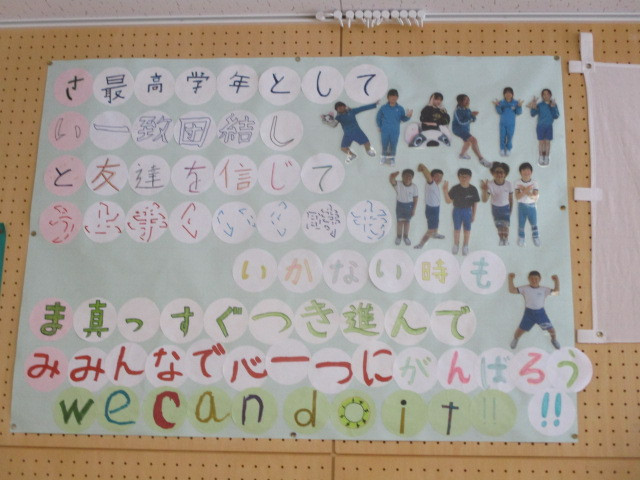 さ最高学年として
い一致団結し
と友達を信じて
う上手くいく時も
いかない時も
ま真っすぐつき進んで
みみんなで心一つにがんばろう
we can do it!!!!